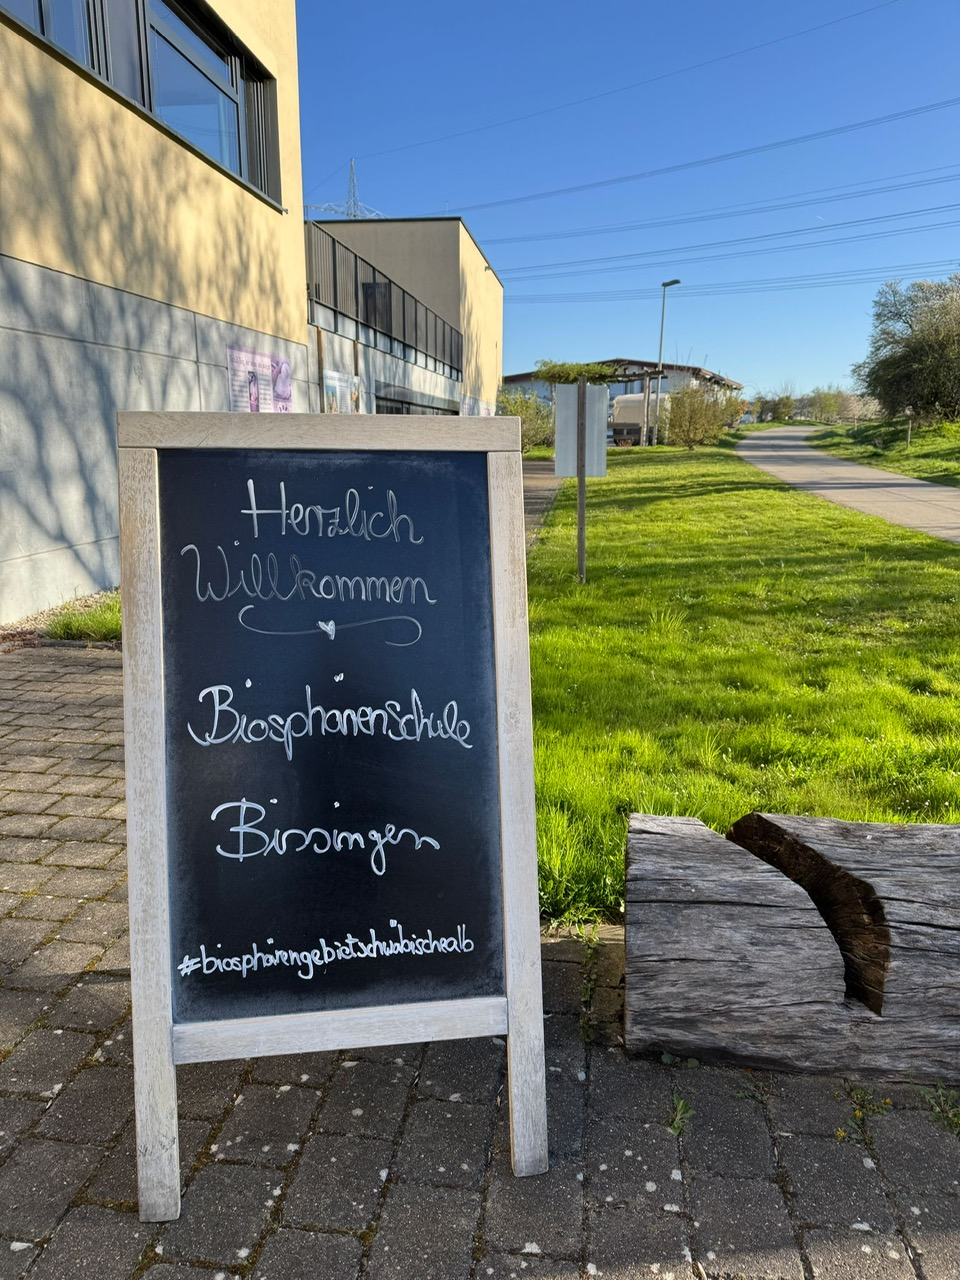 Herzlich
Willkommen
Biosphärenschule
Bissingen
#biosphärengebietschwäbischealb